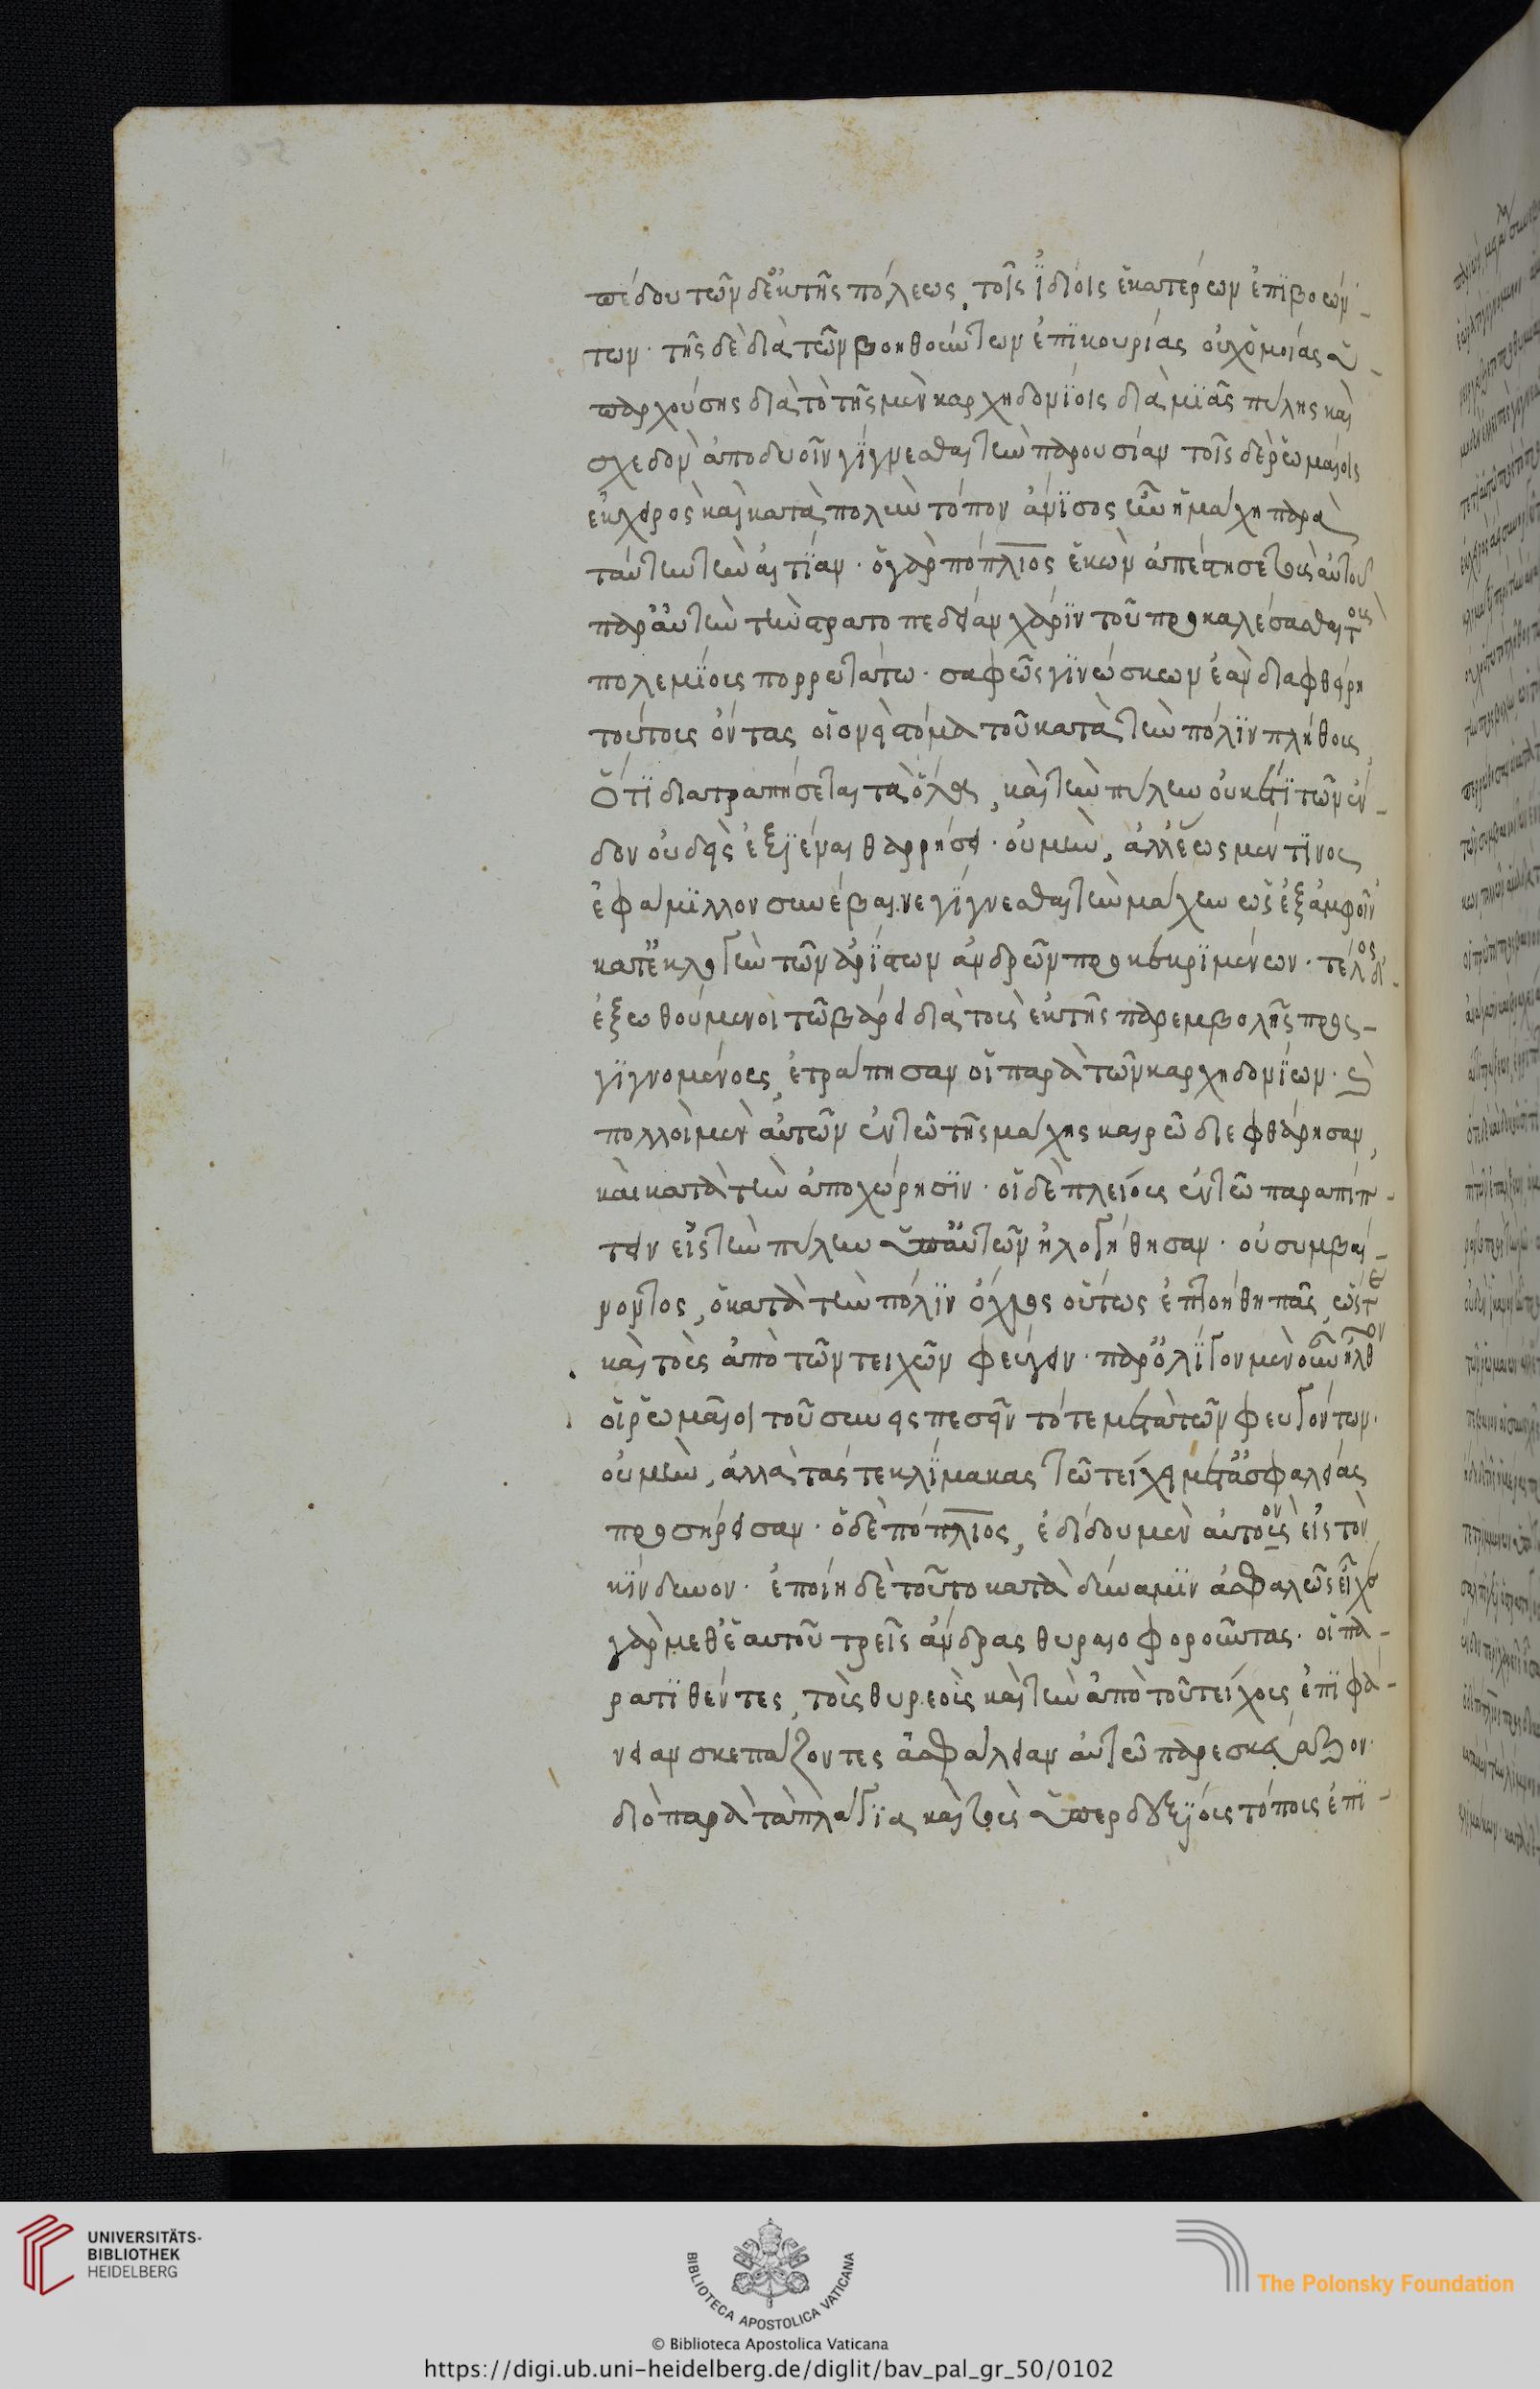 πέδου τῶν δ' ἐκ τῆς πόλεως, τοῖς ἰδίοις ἑκατέρων ἐπιβοών-
των· τῆς δὲ διὰ τῶν βοηθούντων ἐπικουρίας οὐχ ὁμοίας ὑ-
παρχούσης διὰ τὸ τῆς μὲν καρχηδονίοις διὰ μιᾶς πύλης καὶ
σχεδὸν ἀπὸ δυοῖν γίγνεσθαι τὴν παρουσίαν τοῖς δὲ ῥωμαίοις
ἐκ χειρὸς καὶ κατὰ πολὺν τόπον ἄνισος ἦν ἡ μάχη παρὰ
ταύτην τὴν αἰτίαν· ὁ γὰρ πόπλιος ἑκὼν ἀπέστησε τοὺς αὐτοῦ
παρ' αὐτὴν τὴν στρατοπεδείαν χάριν τοῦ προκαλέσασθαι τοὺς
πολεμίους πορρωτάτω· σαφῶς γινώσκων ἐὰν διαφθείρη
τούτους ὄντας οἱονεὶ στόμα τοῦ κατὰ τὴν πόλιν πλήθους,
ὅτι διατραπήσεται τὰ ὅλα, καὶ τὴν πύλην οὐκέτι τῶν ἔν-
δον οὐδεὶς ἐξιέναι θαρρήσει· οὐ μὴν, ἀλλ' ἕως μέν τινος
ἐφάμιλλον συνέβαινε γίγνεσθαι τὴν μάχην ὡς ἐξ ἀμφοῖν
κατ' ἐκλογὴν τῶν ἀρίστων ἀνδρῶν προκεκριμένων· τέλος δ'
ἐξωθούμενοι τῶ βάρει διὰ τοὺς ἐκ τῆς παρεμβολῆς προς-
γιγνομένους, ἐτράπησαν οἱ παρὰ τῶν καρχηδονίων· καὶ
πολλοὶ μὲν αὐτῶν ἐν τῶ τῆς μάχης καιρῶ διεφθάρησαν,
καὶ κατὰ τὴν ἀποχώρησιν· οἱ δὲ πλείους ἐν τῶ παραπίπ-
τειν εἰς τὴν πύλην ὑπ' αὐτῶν ἠλογήθησαν· οὗ συμβαί-
νοντος, ὁ κατὰ τὴν πόλιν ὄχλος οὕτως ἐπτοήθη πᾶς, ὥστε
καὶ τοὺς ἀπὸ τῶν τειχῶν φεύγειν· παρ' ὀλίγον μὲν οὖν ἦλθον
οἱ ῥωμαῖοι τοῦ συνεισπεσεῖν τότε μετὰ τῶν φευγόντων·
οὐ μὴν, ἀλλὰ τάς τε κλίμακας τῶ τείχει μετ' ἀσφαλείας
προσήρεισαν· ὁ δὲ πόπλιος, ἐδίδου μὲν αὑτὸν εἰς τὸν
κίνδυνον· ἐποίη δὲ τοῦτο κατὰ δύναμιν ἀσφαλῶς εἶχε
γὰρ μεθ' ἑαυτοῦ τρεῖς ἄνδρας θυραιοφοροῦντας· οἳ πα-
ρατιθέντες, τοὺς θυρεοὺς καὶ τὴν ἀπὸ τοῦ τείχους ἐπιφά-
νειαν σκεπάζοντες ἀσφάλειαν αὐτῶ παρεσκεύαζον·
διὸ παρὰ τὰ πλάγια καὶ τοὺς ὑπερδεξίους τόπους ἐπι-
UNIVERSITÄTS-
BIBLIOTHEK
HEIDELBERG
BIBLIOTECA APOSTOLICA VATICANA
The Polonsky Foundation
© Biblioteca Apostolica Vaticana
https://digi.ub.uni-heidelberg.de/diglit/bav_pal_gr_50/0102